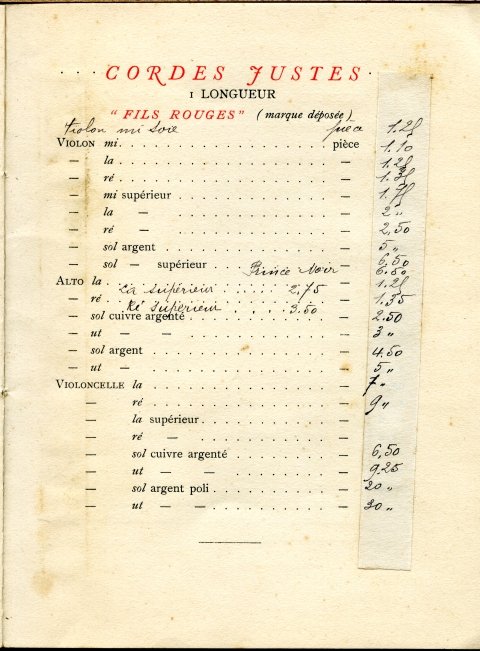 CORDES JUSTES
1 LONGUEUR
" FILS ROUGES " (marque déposée)
violon mi soie pièce 1.25
VIOLON mi pièce 1.10
— la — 1.25
— ré — 1.35
— mi supérieur — 1.75
— la — — 2 „
— ré — — 2,50
— sol argent — 5 „
— sol — supérieur — 6,50
Prince Noir 6.50
ALTO la — 1.25
La supérieur 2.75
— ré — 1.35
Ré supérieur 3.50
— sol cuivre argenté — 2.50
— ut — — — 3 „
— sol argent — 4.50
— ut — — 5 „
VIOLONCELLE la — 7 „
— ré — 9 „
— la supérieur —
— ré — —
— sol cuivre argenté — 6,50
— ut — — — 9.25
— sol argent poli — 20 „
— ut — — — 30 „